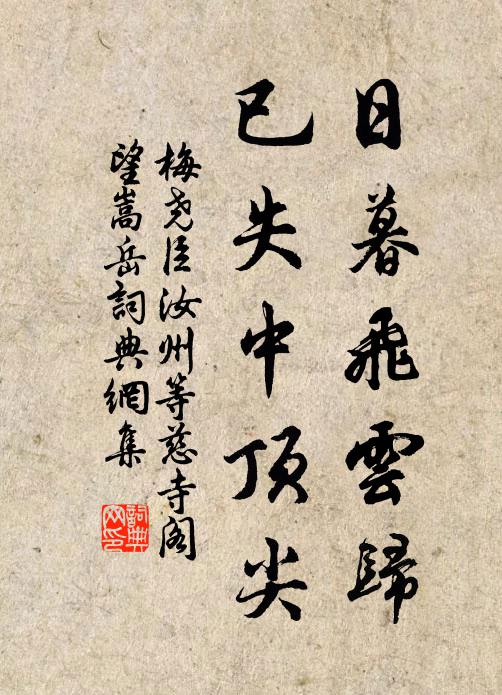 日暮飛雲歸
已失中頂尖
梅堯臣汝州等慈寺閣
望嵩岳詞典網集
詞典
网印